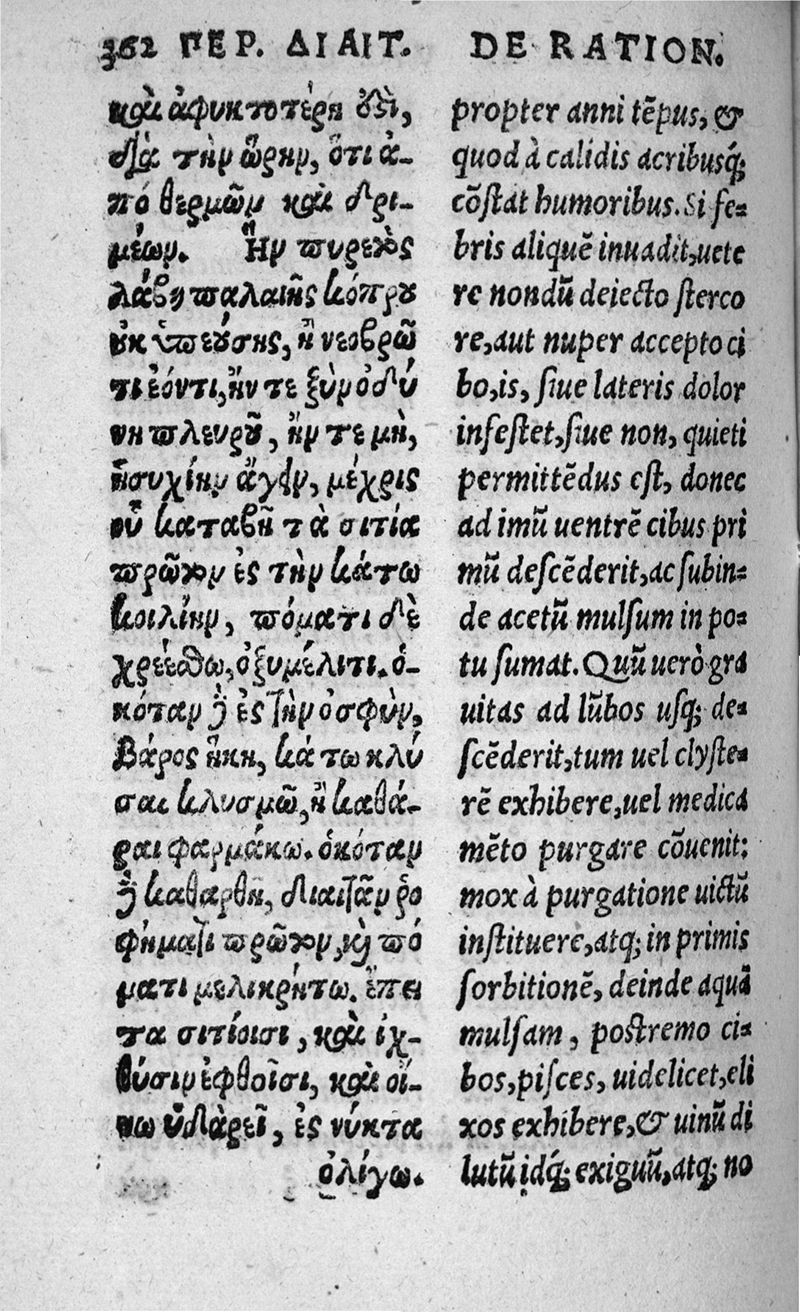 362 ΠΕΡ. ΔΙΑΙΤ. DE RATION.
καὶ ἀφυκτοτέρη ἐστὶ,
διὰ τὴν ὥρην, ὅτι ἀ-
πό θερμῶν καὶ δρι-
μέων. Ἢν πυρετὸς
λάβῃ παλαιῆς κόπρου
οὐκ ὑπεούσης, ἢ νεοβρῶ
τι ἐόντι, ἤν τε ξὺν ὀδύ
νη πλευροῦ, ἤν τε μὴ,
ἡσυχίην ἄγειν, μέχρις
οὗ καταβῆ τὰ σιτία
πρῶτον ἐς τὴν κάτω
κοιλίην, πόματι δὲ
χρεέσθω, ὀξυμέλιτι. ὁ-
κόταν δὲ ἐς τὴν ὀσφὺν,
βάρος ἥκη, κάτω κλύ
σαι κλυσμῶ, ἢ καθά-
ραι φαρμάκω. ὁκόταν
δὲ καθαρθῆ, διαιτᾶν ῥο
φήματι πρῶτον, καὶ πό
ματι μελικρήτω. ἔπει
τα σιτίοισι, καὶ ἰχ-
θύσιν ἑφθοῖσι, καὶ οἴ-
νω ὑδαρεῖ, ἐς νύκτα
ὀλίγω.
propter anni tẽpus, &
quod à calidis acribusq́;
cõstat humoribus. Si fe-
bris aliquẽ inuadit, uete
re nondũ deiecto sterco
re, aut nuper accepto ci
bo, is, siue lateris dolor
infestet, siue non, quieti
permittẽdus est, donec
ad imũ uentrẽ cibus pri
mũ descẽderit, ac subin-
de acetũ mulsum in po-
tu sumat. Quũ uerò gra
uitas ad lũbos usq; de-
scẽderit, tum uel clyste-
rẽ exhibere, uel medica
mẽto purgare cõuenit:
mox à purgatione uictũ
instituere, atq; in primis
sorbitionẽ, deinde aquã
mulsam, postremo ci-
bos, pisces, uidelicet, eli
xos exhibere, & uinũ di
lutũ idq́; exiguũ, atq; no